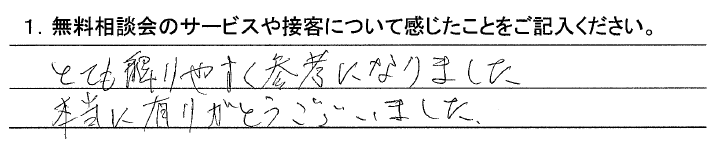 1．無料相談会のサービスや接客について感じたことをご記入ください。
とても解りやすく参考になりました
本当に有りがとうございました。